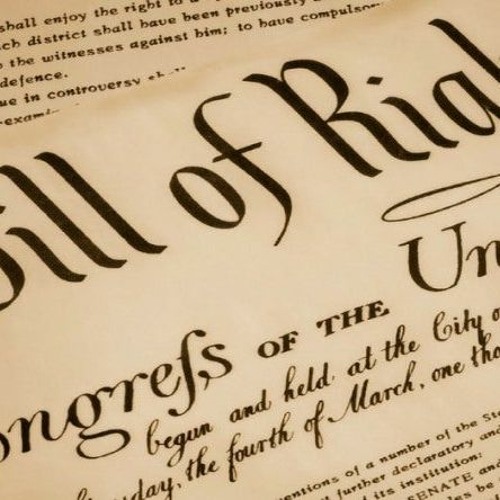 shall enjoy the right to a
ch district shall have been previously
the witnesses against him; to have compulsor
defence.
ue in controversy shall
-exam
Bill of Rig
Un
ongreſs OF THE
begun and held at the City o
day, the fourth of March, one tho
entions of a number of the St
further declaratory and
its institution:
ENATE and